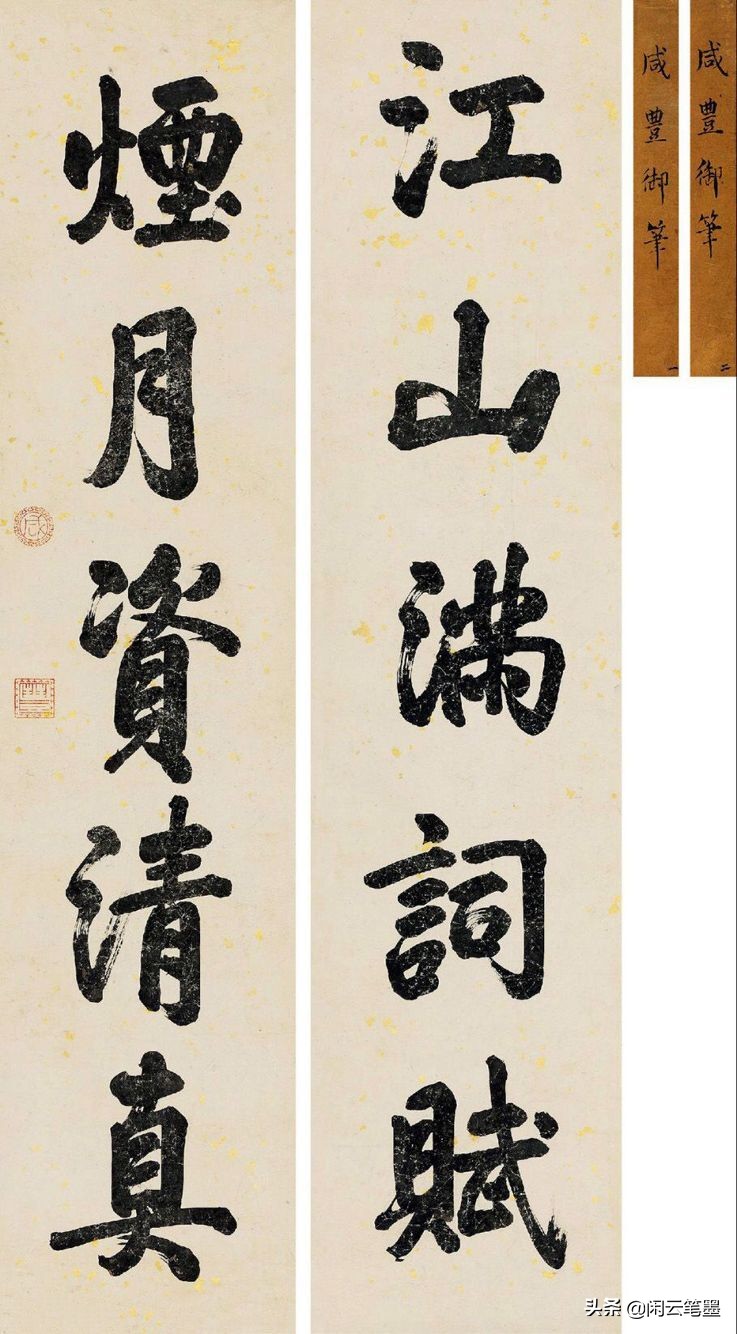 江山滿詞賦
煙月資清真
咸豐御筆 二
咸豐御筆 一
咸
豐
头条 @闲云笔墨